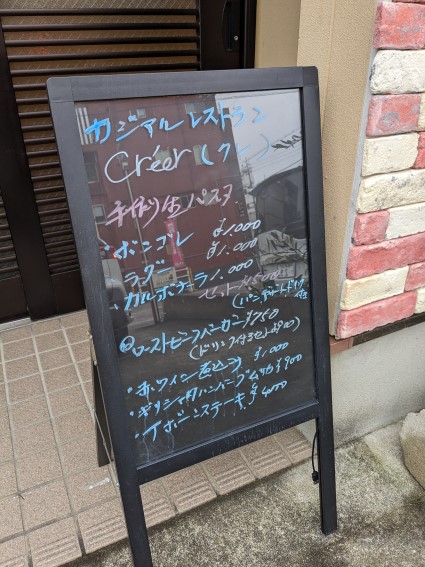 カジアルレストラン
Créer(クレー)
手作り生パスタ
・ボンゴレ ¥1.000
ラグー ¥1.000
・カルボナーラ 1.000
セット ¥500
(パン、デザート、ドリンク付
@ローストビーフバーガー ¥750
(ドリンク付セット
・赤ワイン煮込み ¥1.000
・ギリシャ風ハンバーグ ¥900
ステーキ